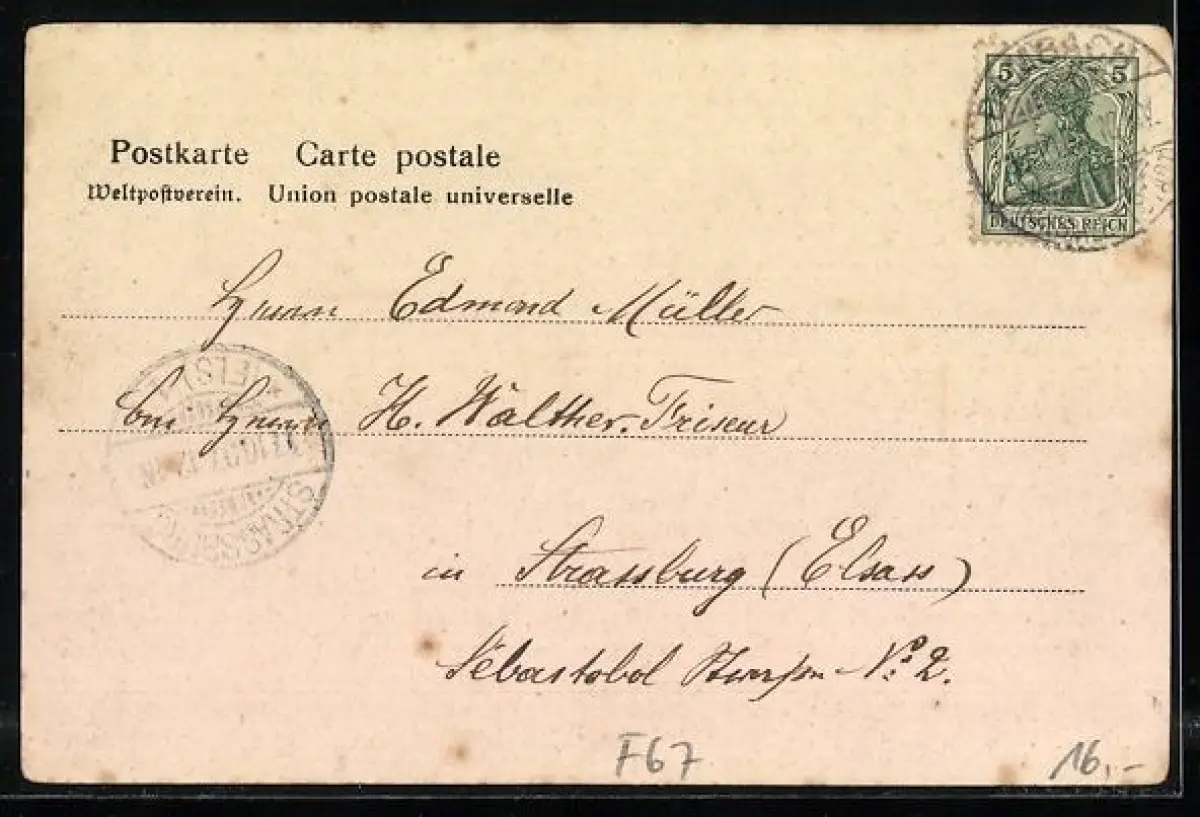 Postkarte Carte postale
Weltpostverein. Union postale universelle
5 5
DEUTSCHES REICH
Herrn Edmond Müller
bei Herrn H. Walther. Friseur
in Strassburg (Elsass)
Sebastobol Strasse No. 2.
STRASSBURG
(ELS)
F67
16,-